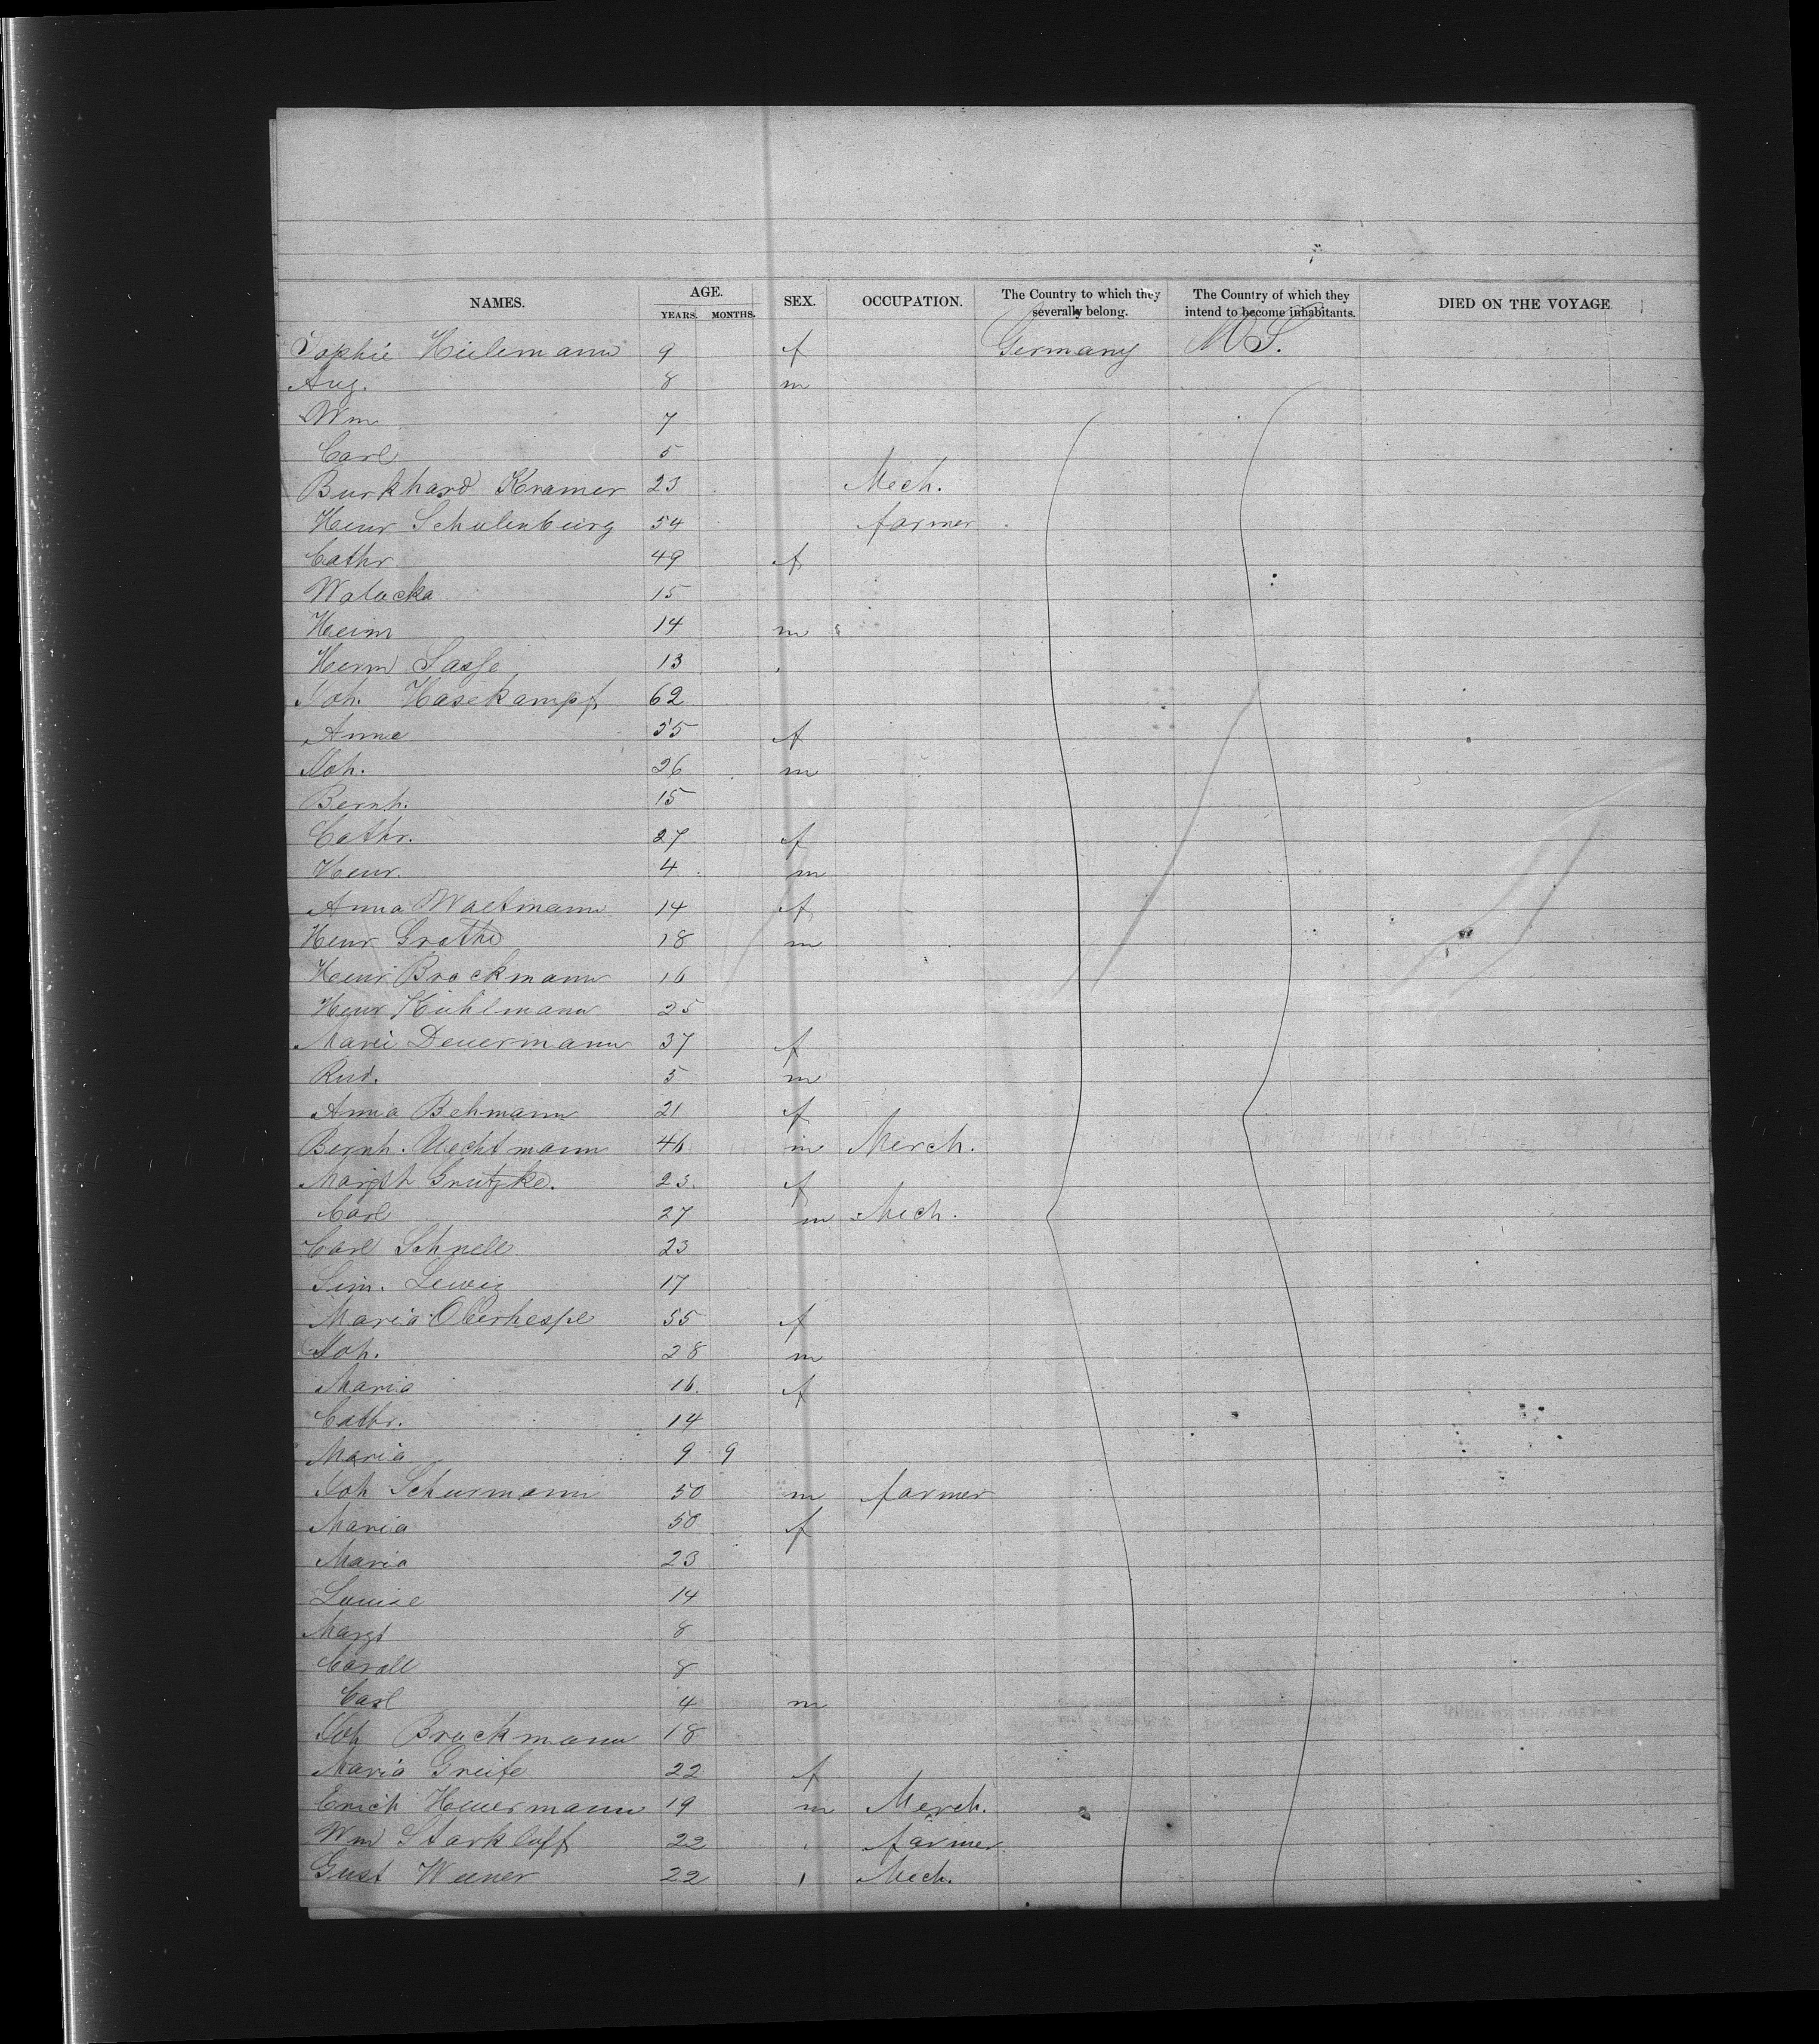 NAMES. AGE. SEX. OCCUPATION. The Country to which they severally belong. The Country of which they intend to become inhabitants. DIED ON THE VOYAGE
YEARS. MONTHS.
Sophie Heilemann 9 f Germany U.S.
Aug. 8 m
Wm 7
Carl 5
Burkhard Kramer 23 Mech.
Henr Schulenburg 54 farmer
Cathr 49 f
Walucka 15
Heinr 14 m
Herm Sasse 13
Joh. Hasekampf 62
Anna 55 f
Joh. 26 m
Bernh. 15
Cathr. 27 f
Henr. 4 m
Anna Waltmann 14 f
Henr Grothe 18 m
Henr Brockmann 16
Henr Kuhlmann 25
Marie Deuermann 37 f
Rud. 5 m
Anna Behmann 21 f
Bernh. Uechtmann 46 m Merch.
Margth Grutzke. 23 f
Carl 27 m Mech.
Carl Schnell 23
Sim. Lewig 17
Maria Oberhespe 55 f
Joh. 28 m
Maria 16 f
Cathr. 14
Maria 9 9
Joh Schurmann 50 m farmer
Maria 50 f
Maria 23
Louise 14
Margt 8
Caroll 8
Carl 4 m
Joh Brockmann 18
Maria Greife 22 f
Erich Heuermann 19 m Merch.
Wm Starkloff 22 farmer
Gust Wiener 22 Mech.